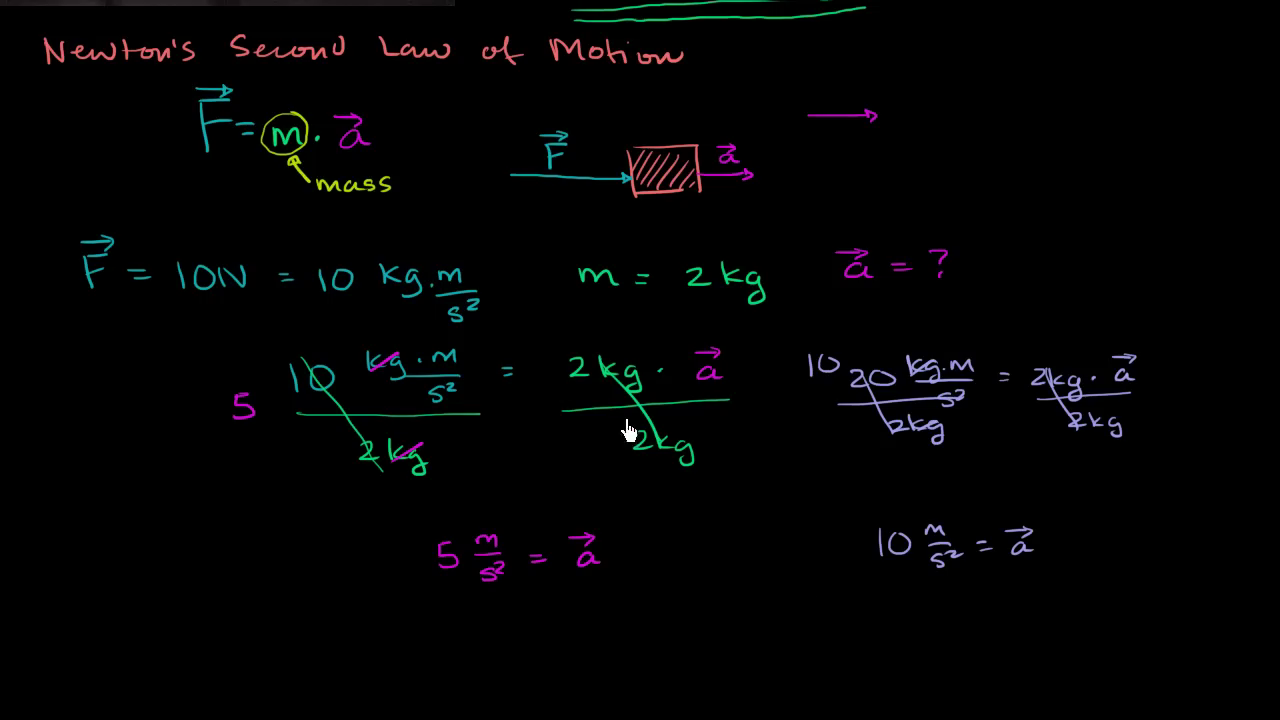 Newton's Second Law of Motion
F = m · a
mass
F a
F = 10N = 10 kg · m/s² m = 2kg a = ?
5 10 kg · m/s² / 2kg = 2kg · a / 2kg
10 20 kg · m/s² / 2kg = 2kg · a / 2kg
5 m/s² = a
10 m/s² = a